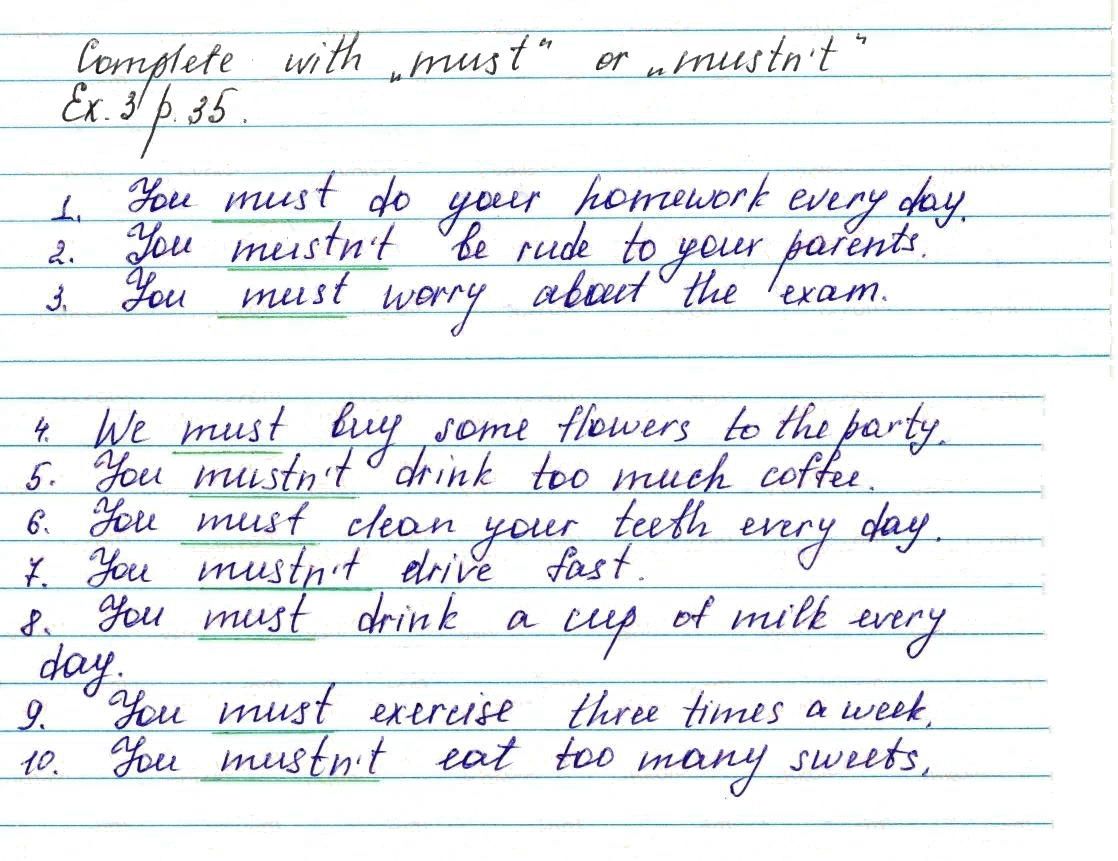 Complete with „must“ or „mustn't“
Ex. 3 p. 35.
1. You must do your homework every day.
2. You mustn't be rude to your parents.
3. You must worry about the exam.
4. We must buy some flowers to the party.
5. You mustn't drink too much coffee.
6. You must clean your teeth every day.
7. You mustn't drive fast.
8. You must drink a cup of milk every
day.
9. You must exercise three times a week.
10. You mustn't eat too many sweets.